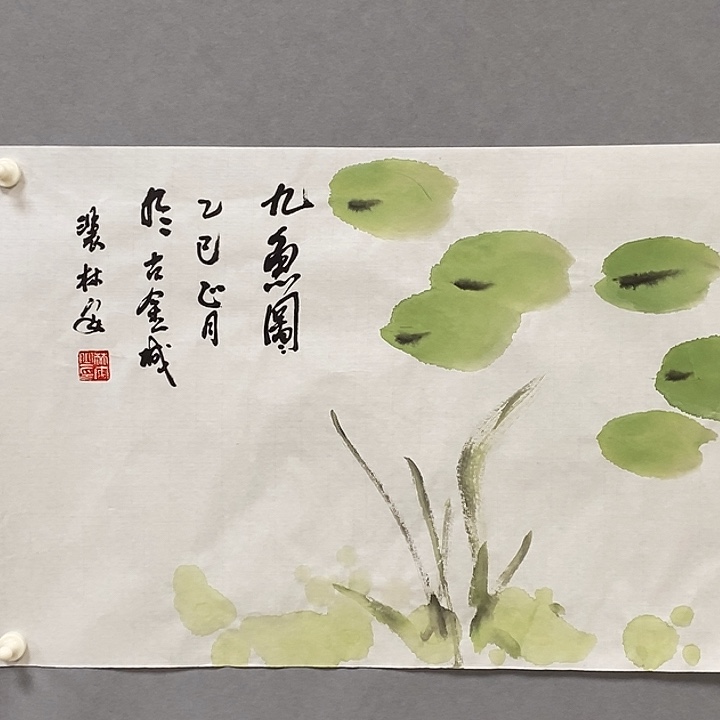 九鱼圖
乙巳正月
於古金城
裴林安